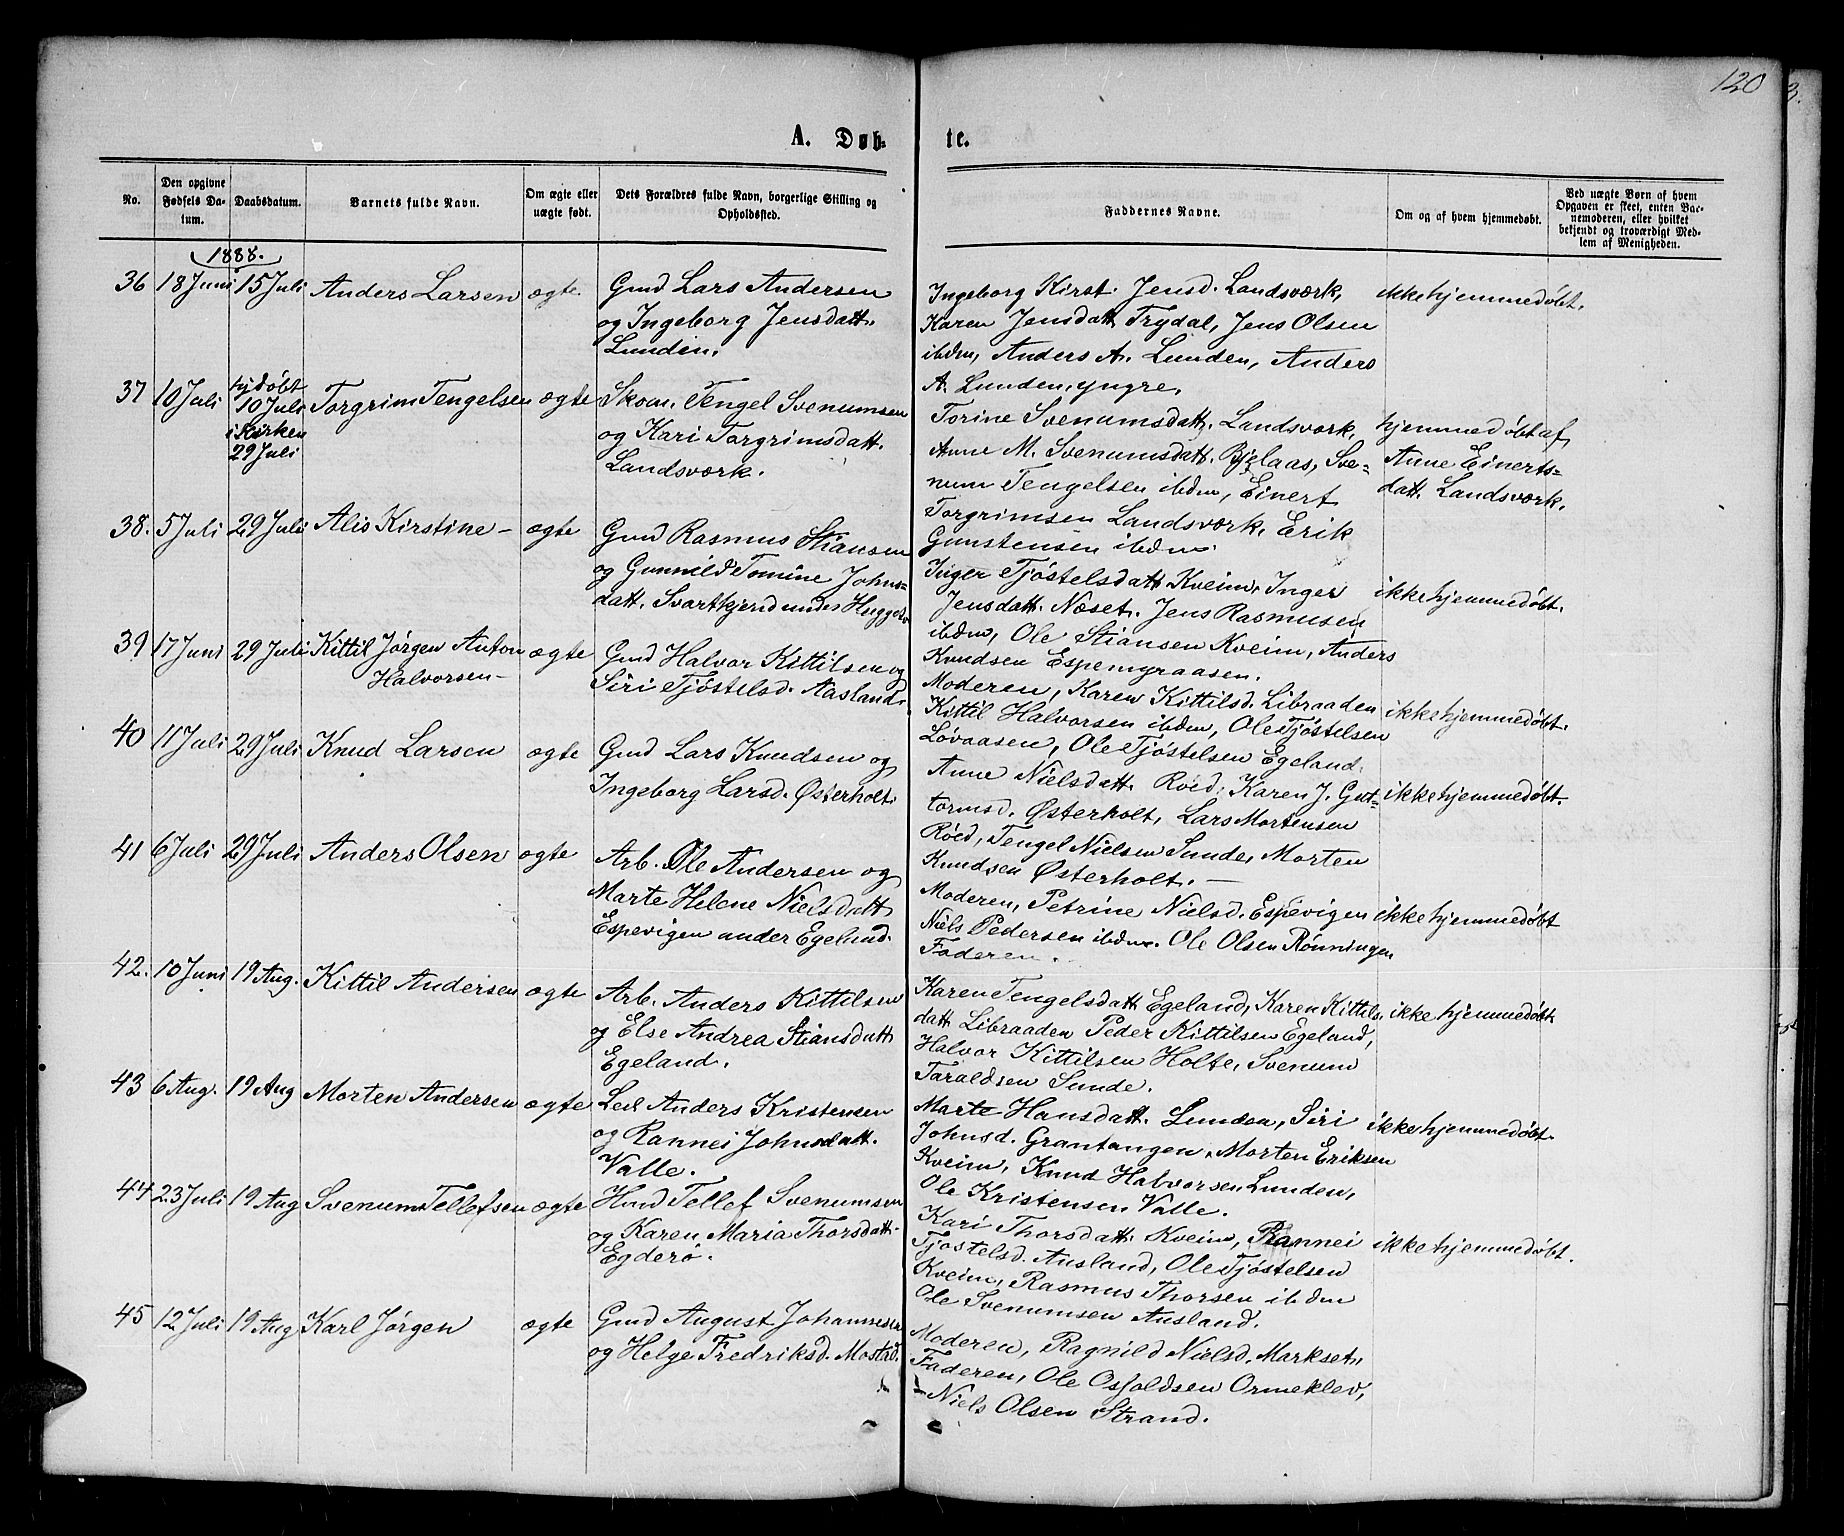 120
3.
A. Døb-
te.
No.
Den opgivne Fødsels Datum.
Daabsdatum.
Barnets fulde Navn.
Om ægte eller uægte født.
Dets Forældres fulde Navn, borgerlige Stilling og Opholdssted.
Faddernes Navne.
Om og af hvem hjemmedøbt.
Ved uægte Børn af hvem Opgaven er skeet, enten Barnemoderen, eller hvilket bekjendt og troværdigt Medlem af Menigheden.
1888.
36 18 Juni 15 Juli Anders Larsen ægte.
Gmd Lars Andersen
og Ingeborg Jensdatt.
Lunden.
Ingeborg Kirst. Jensd. Landsværk,
Karen Jensdatt Trydal, Jens Olsen
ibdm, Anders A. Lunden, Anders
A. Lunden, yngre.
ikke hjemmedøbt.
37 10 Juli
hjdøbt
10 Juli
i Kirken
29 Juli
Torgrim Tengelsen ægte
Skom. Tengel Svenumsen
og Kari Torgrimsdatt.
Landsværk.
Torine Svenumsdatt. Landsværk,
Anne M. Svenumsdatt. Bjelaas, Sve-
num Tengelsen ibdm, Einert
Torgrimsen Landsværk, Erik
Gunstensen ibdm.
hjemmedøbt af
Anne Einerts-
datt. Landsværk.
38. 5 Juli 29 Juli Alis Kirstine - ægte
Gmd Rasmus Stiansen
og Gunnild Tomine Johns-
datt. Svartkjend under
Inger Tjøstelsdatt Kveim, Inger
Jensdatt. Næset. Jens Rasmusen
ibdm, Ole Stiansen Kveim, Anders
Knudsen Espemyraasen.
ikke hjemmedøbt.
39 17 Juni 29 Juli Kittil Jørgen Anton
Halvorsen -
ægte
Gmd Halvor Kittilsen og
Siri Tjøstelsd. Aasland.
Moderen, Karen Kittilsd. Libraaden
Kittil Halvorsen ibdm, Ole Tjøstelsen
Løvaasen, Ole Tjøstelsen Egeland.
ikke hjemmedøbt.
40 11 Juli 29 Juli Knud Larsen ægte
Gmd Lars Knudsen og
Ingeborg Larsd. Østerholt.
Anne Nielsdatt. Røed, Karen J. Gut-
tormsd. Østerholt, Lars Mortensen
Røed, Tengel Nielsen Sunde, Morten
Knudsen Østerholt. -
ikke hjemmedøbt.
41 6 Juli 29 Juli Anders Olsen ægte
Arb. Ole Andersen og
Marte Helene Nielsdatt
Espevigen under Egeland.
Moderen, Petrine Nielsd. Espevigen
Niels Pedersen ibdm. Ole Olsen Rønningen
Faderen.
ikke hjemmedøbt
42. 10 Juni 19 Aug. Kittil Andersen ægte
Arb. Anders Kittilsen
og Else Andrea Stiansdatt
Egeland.
Karen Tengelsdatt Egeland, Karen Kittils
datt Libraaden Peder Kittilsen Egeland,
Halvor Kittilsen Holte, Svenum
Taraldsen Sunde.
ikke hjemmedøbt.
43 6 Aug. 19 Aug Morten Andersen ægte
Led Anders Kristensen
og Rannei Johnsdatt.
Valle.
Marte Hansdatt. Lunden, Siri
Johnsd. Grantangen, Morten Eriksen
Kveim, Knud Halvorsen Lunden,
Ole Kristensen Valle.
ikke hjemmedøbt.
44 23 Juli 19 Aug Svenum Tellefsen ægte
Hmd Tellef Svenumsen
og Karen Maria Thorsdatt.
Egderö.
Kari Thorsdatt. Kveim, Rannei
Tjøstelsd. Ausland, Ole Tjøstelsen
Kveim, Rasmus Thorsen ibdm
Ole Svenumsen Ausland.
ikke hjemmedøbt.
45 12 Juli 19 Aug Karl Jørgen ægte
Gmd August Johannesen
og Helge Fredriksd. Mostad.
Moderen, Ragnild Nielsd. Markset,
Faderen, Ole Osfoldsen Ormeklev,
Niels Olsen Strand.